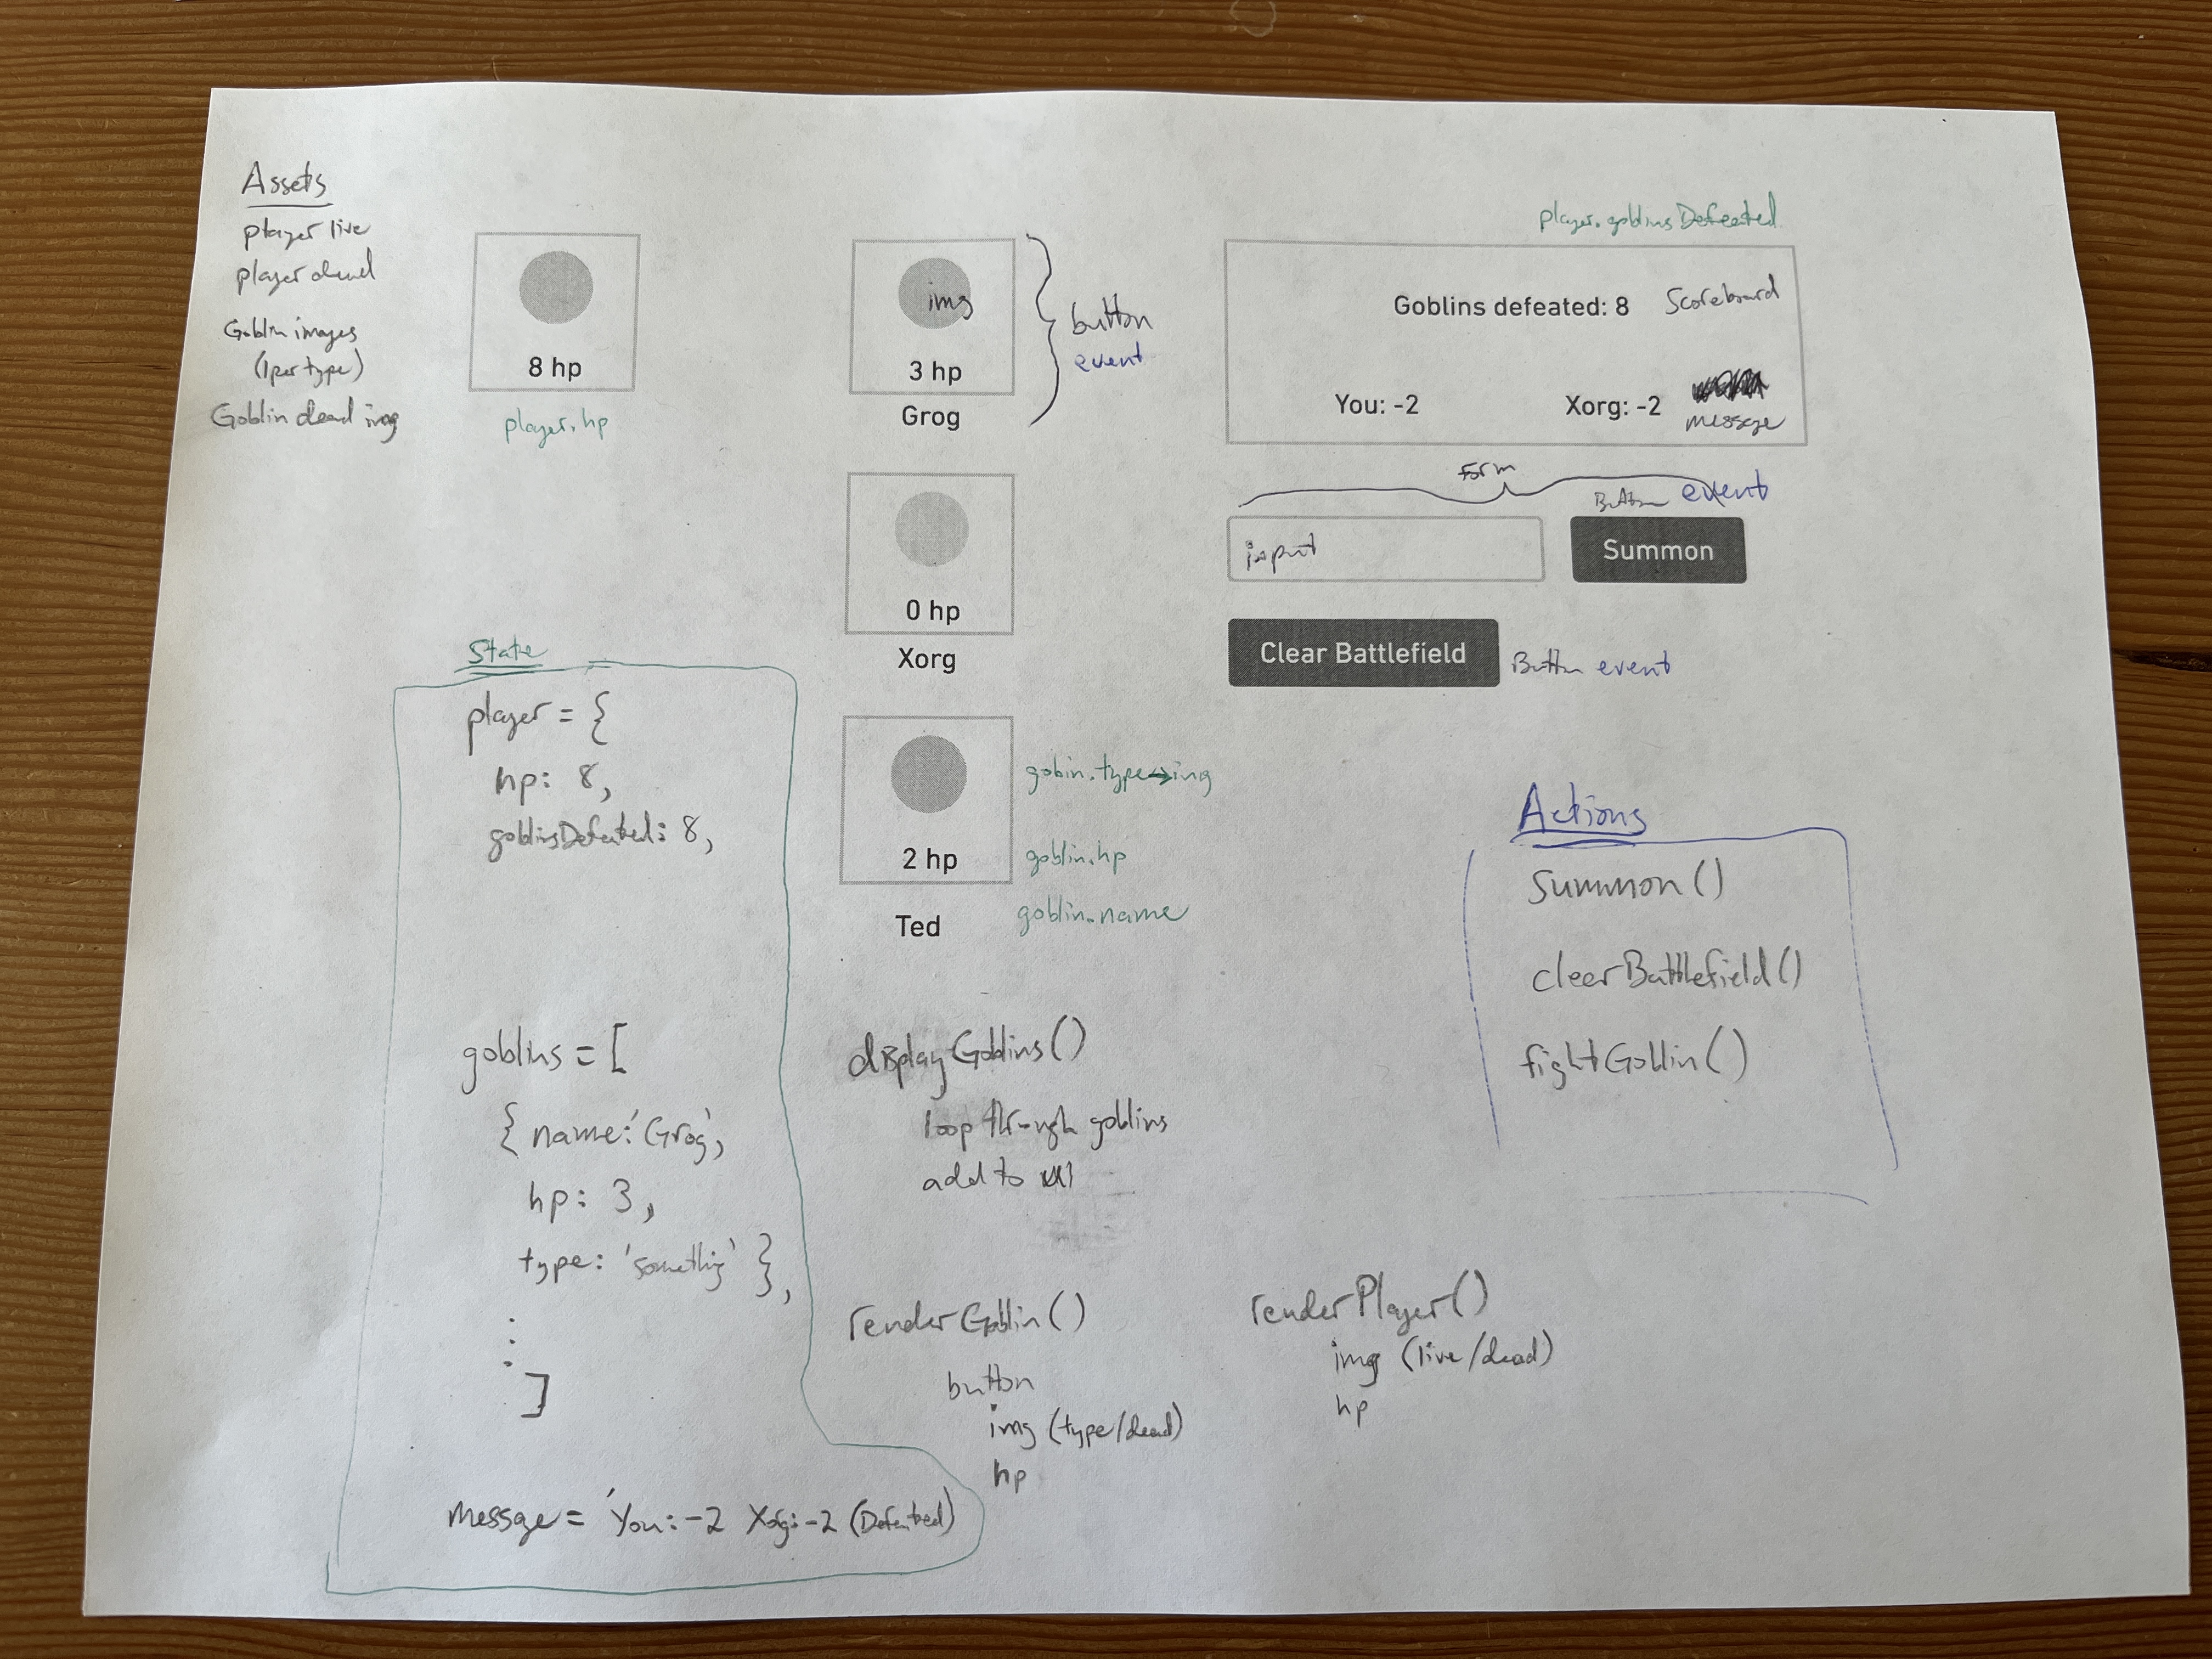 Assets
player live
player dead
Goblin images
(1 per type)
Goblin dead img
8 hp
player.hp
img
3 hp
Grog
button
event
0 hp
Xorg
2 hp
Ted
gobin.type→img
goblin.hp
goblin.name
player.goblinsDefeated
Goblins defeated: 8
Scoreboard
You: -2
Xorg: -2
message
form
Button event
input
Summon
Clear Battlefield
Button event
State
player = {
hp: 8,
goblinsDefeated: 8,
goblins = [
{ name: 'Grog',
hp: 3,
type: 'something' },
]
message = 'You: -2 Xorg: -2 (Defeated)
displayGoblins()
loop through goblins
add to
renderGoblin()
button
img (type/dead)
hp
renderPlayer()
img (live/dead)
hp
Actions
summon()
clearBattlefield()
fightGoblin()